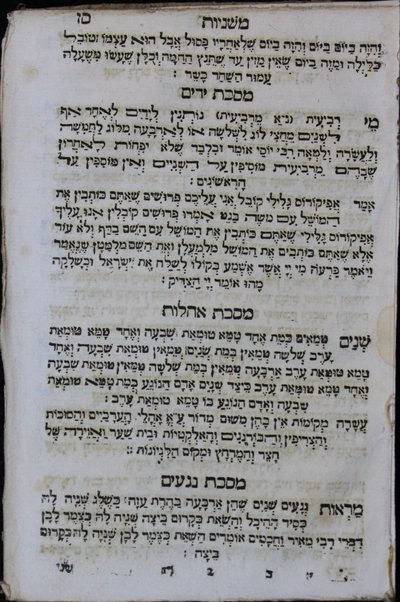 משניות סז
וְהָיָה בַּיּוֹם בַּיּוֹם וְהָיָה בַּיּוֹם שֶׁלְאַחֲרָיו פָּסוּל אֲבָל הוּא עַצְמוֹ טוֹבֵל
בַּלַּיְלָה וּמַזֶּה בַּיּוֹם שֶׁאֵין מַזִּין עַד שֶׁתָּנֵץ הַחַמָּה וְכֻלָּן שֶׁעָשׂוּ מִשֶּׁעָלָה
עַמּוּד הַשַּׁחַר כָּשֵׁר :
מסכת ידים
מֵי רְבִיעִית (נ״א מֵרְבִיעִית) נוֹתְנִין לַיָּדַיִם לְאֶחָד אַף
לִשְׁנַיִם מֵחֲצִי לוֹג לִשְׁלֹשָׁה אוֹ לְאַרְבָּעָה מִלּוֹג לַחֲמִשָּׁה
וְלַעֲשָׂרָה וּלְמֵאָה רַבִּי יוֹסֵי אוֹמֵר וּבִלְבַד שֶׁלֹּא יִפְחוֹת לָאַחֲרוֹן
שֶׁבָּהֶם מֵרְבִיעִית מוֹסִיפִין עַל הַשְּׁנִיִּים וְאֵין מוֹסִיפִין עַל
הָרִאשׁוֹנִים :
אָמַר אֶפִּיקוֹרוֹס גְּלִילִי קוֹבֵל אֲנִי עֲלֵיכֶם פְּרוּשִׁים שֶׁאַתֶּם כּוֹתְבִין אֶת
הַמּוֹשֵׁל עִם מֹשֶׁה בַּגֵּט אָמְרוּ פְּרוּשִׁים קוֹבְלִין אָנוּ עָלֶיךָ
אֶפִּיקוֹרוֹס גְּלִילִי שֶׁאַתֶּם כּוֹתְבִין אֶת הַמּוֹשֵׁל עִם הַשֵּׁם בַּדַּף וְלֹא עוֹד
אֶלָּא שֶׁאַתֶּם כּוֹתְבִים אֶת הַמּוֹשֵׁל מִלְמַעְלָן וְאֶת הַשֵּׁם מִלְמַטָּן שֶׁנֶּאֱמַר
וַיֹּאמֶר פַּרְעֹה מִי יְיָ אֲשֶׁר אֶשְׁמַע בְּקוֹלוֹ לְשַׁלַּח אֶת יִשְׂרָאֵל וּכְשֶׁלָּקָה
מַהוּ אוֹמֵר יְיָ הַצַּדִּיק :
מסכת אהלות
שְׁנַיִם טְמֵאִים בְּמֵת אֶחָד טָמֵא טוּמְאַת שִׁבְעָה וְאֶחָד טָמֵא טוּמְאַת
עֶרֶב שְׁלֹשָׁה טְמֵאִין בְּמֵת שְׁנַיִם טְמֵאִין טוּמְאַת שִׁבְעָה וְאֶחָד
טָמֵא טוּמְאַת עֶרֶב אַרְבָּעָה טְמֵאִין בְּמֵת שְׁלֹשָׁה טְמֵאִין טוּמְאַת שִׁבְעָה
וְאֶחָד טָמֵא טוּמְאַת עֶרֶב כֵּיצַד שְׁנַיִם אָדָם הַנּוֹגֵעַ בְּמֵת טָמֵא טוּמְאַת
שִׁבְעָה וְאָדָם הַנּוֹגֵעַ בּוֹ טָמֵא טוּמְאַת עֶרֶב :
עֲשָׂרָה מְקוֹמוֹת אֵין בָּהֶן מִשּׁוּם מְדוֹר עַ״א אָהֳלֵי הָעַרְבִיִּים וְהַסּוּכּוֹת
וְהַצְּרִיפִין וְהַבּוּרְגָּנִים וְהָאַלְקְטִיּוֹת וּבֵית שַׁעַר וַאֲוִירָהּ שֶׁל
חָצֵר וְהַמֶּרְחָץ וּמְקוֹם הַלִּגְיוֹנוֹת :
מסכת נגעים
מַרְאוֹת נְגָעִים שְׁנַיִם שֶׁהֵן אַרְבָּעָה בַּהֶרֶת עַזָּה כַּשֶּׁלֶג שְׁנִיָּה לָהּ
כְּסִיד הַהֵיכָל וְהַשְּׂאֵת כִּקְרוּם בֵּיצָה שְׁנִיָּה לָהּ כְּצֶמֶר לָבָן
דִּבְרֵי רַבִּי מֵאִיר וַחֲכָמִים אוֹמְרִים הַשְּׂאֵת כְּצֶמֶר לָבָן שְׁנִיָּה לָהּ כִּקְרוּם
בֵּיצָה :
שני